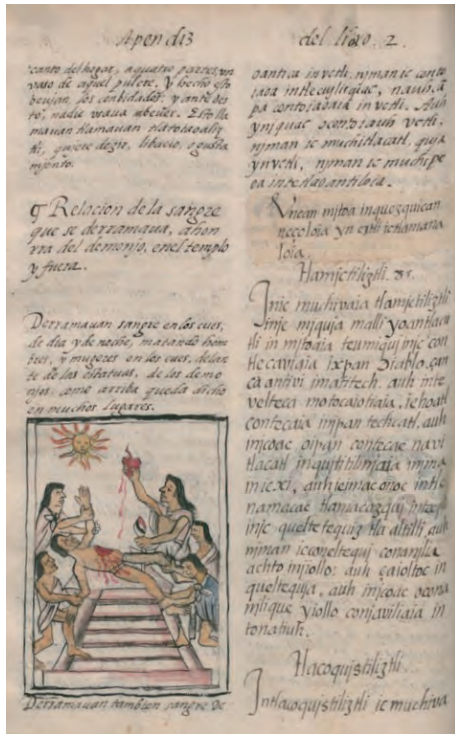 Apendiz del libro. 2.
canto del hogar, a quatro partes, un
vaso de aquel pulcre. y hecho esto
beujan, los conbidados: y ante des
to, nadie usaua abeuer. Esto lla
mauan tlamauan tlatotoaliz
tli, qujere dezir, libacio, o gusta
mjento.
¶ Relacion de la sangre
que se derramaua, a hon
rra del demonjo, en el templo
y fuera.
Derramauan sangre en los cues,
de dia y de noche, matando hom
bres, y mugeres en los cues, delan
te de las estatuas, de los demo
njos: como arriba queda dicho
en muchos lugares.
Derramauan tambien sangre de
oantica in vctli, njman ic conto
iaoa intlecujlixquac, nauhca
pa contoiaoaia in vctli. Auh
yniquac ocontoiauh vctli,
njman ic muchitlacatl, quja
yn vctli, njman ic muchi pe
oa in tetlaoantiloia.
Vncan mjtoa in quezqujcan
neçoloia yn
loia.
Tlamjctiliztli.
Jnic muchivaia tlamjctiliztli
injc mjquja malli yoan tlaca
tli in mjtoaia teumjqui injc con
tlecaviaia ixpan Diablo, çan
ca antivi imatitech. auh
contecaia inpan techcatl, auh
injcoac oipan contecac navi
tlacatl
in icxi, auh
namacac tlamacazquj
njman ic coneltequj conanilia
achto in jiollo: auh
queltequja, auh injcoac ocona
nilique yiollo conjaviliaia in
tonatiuh.
Tlacoqujxtiliztli.
Jn tlacoqujxtiliztli ic muchiva